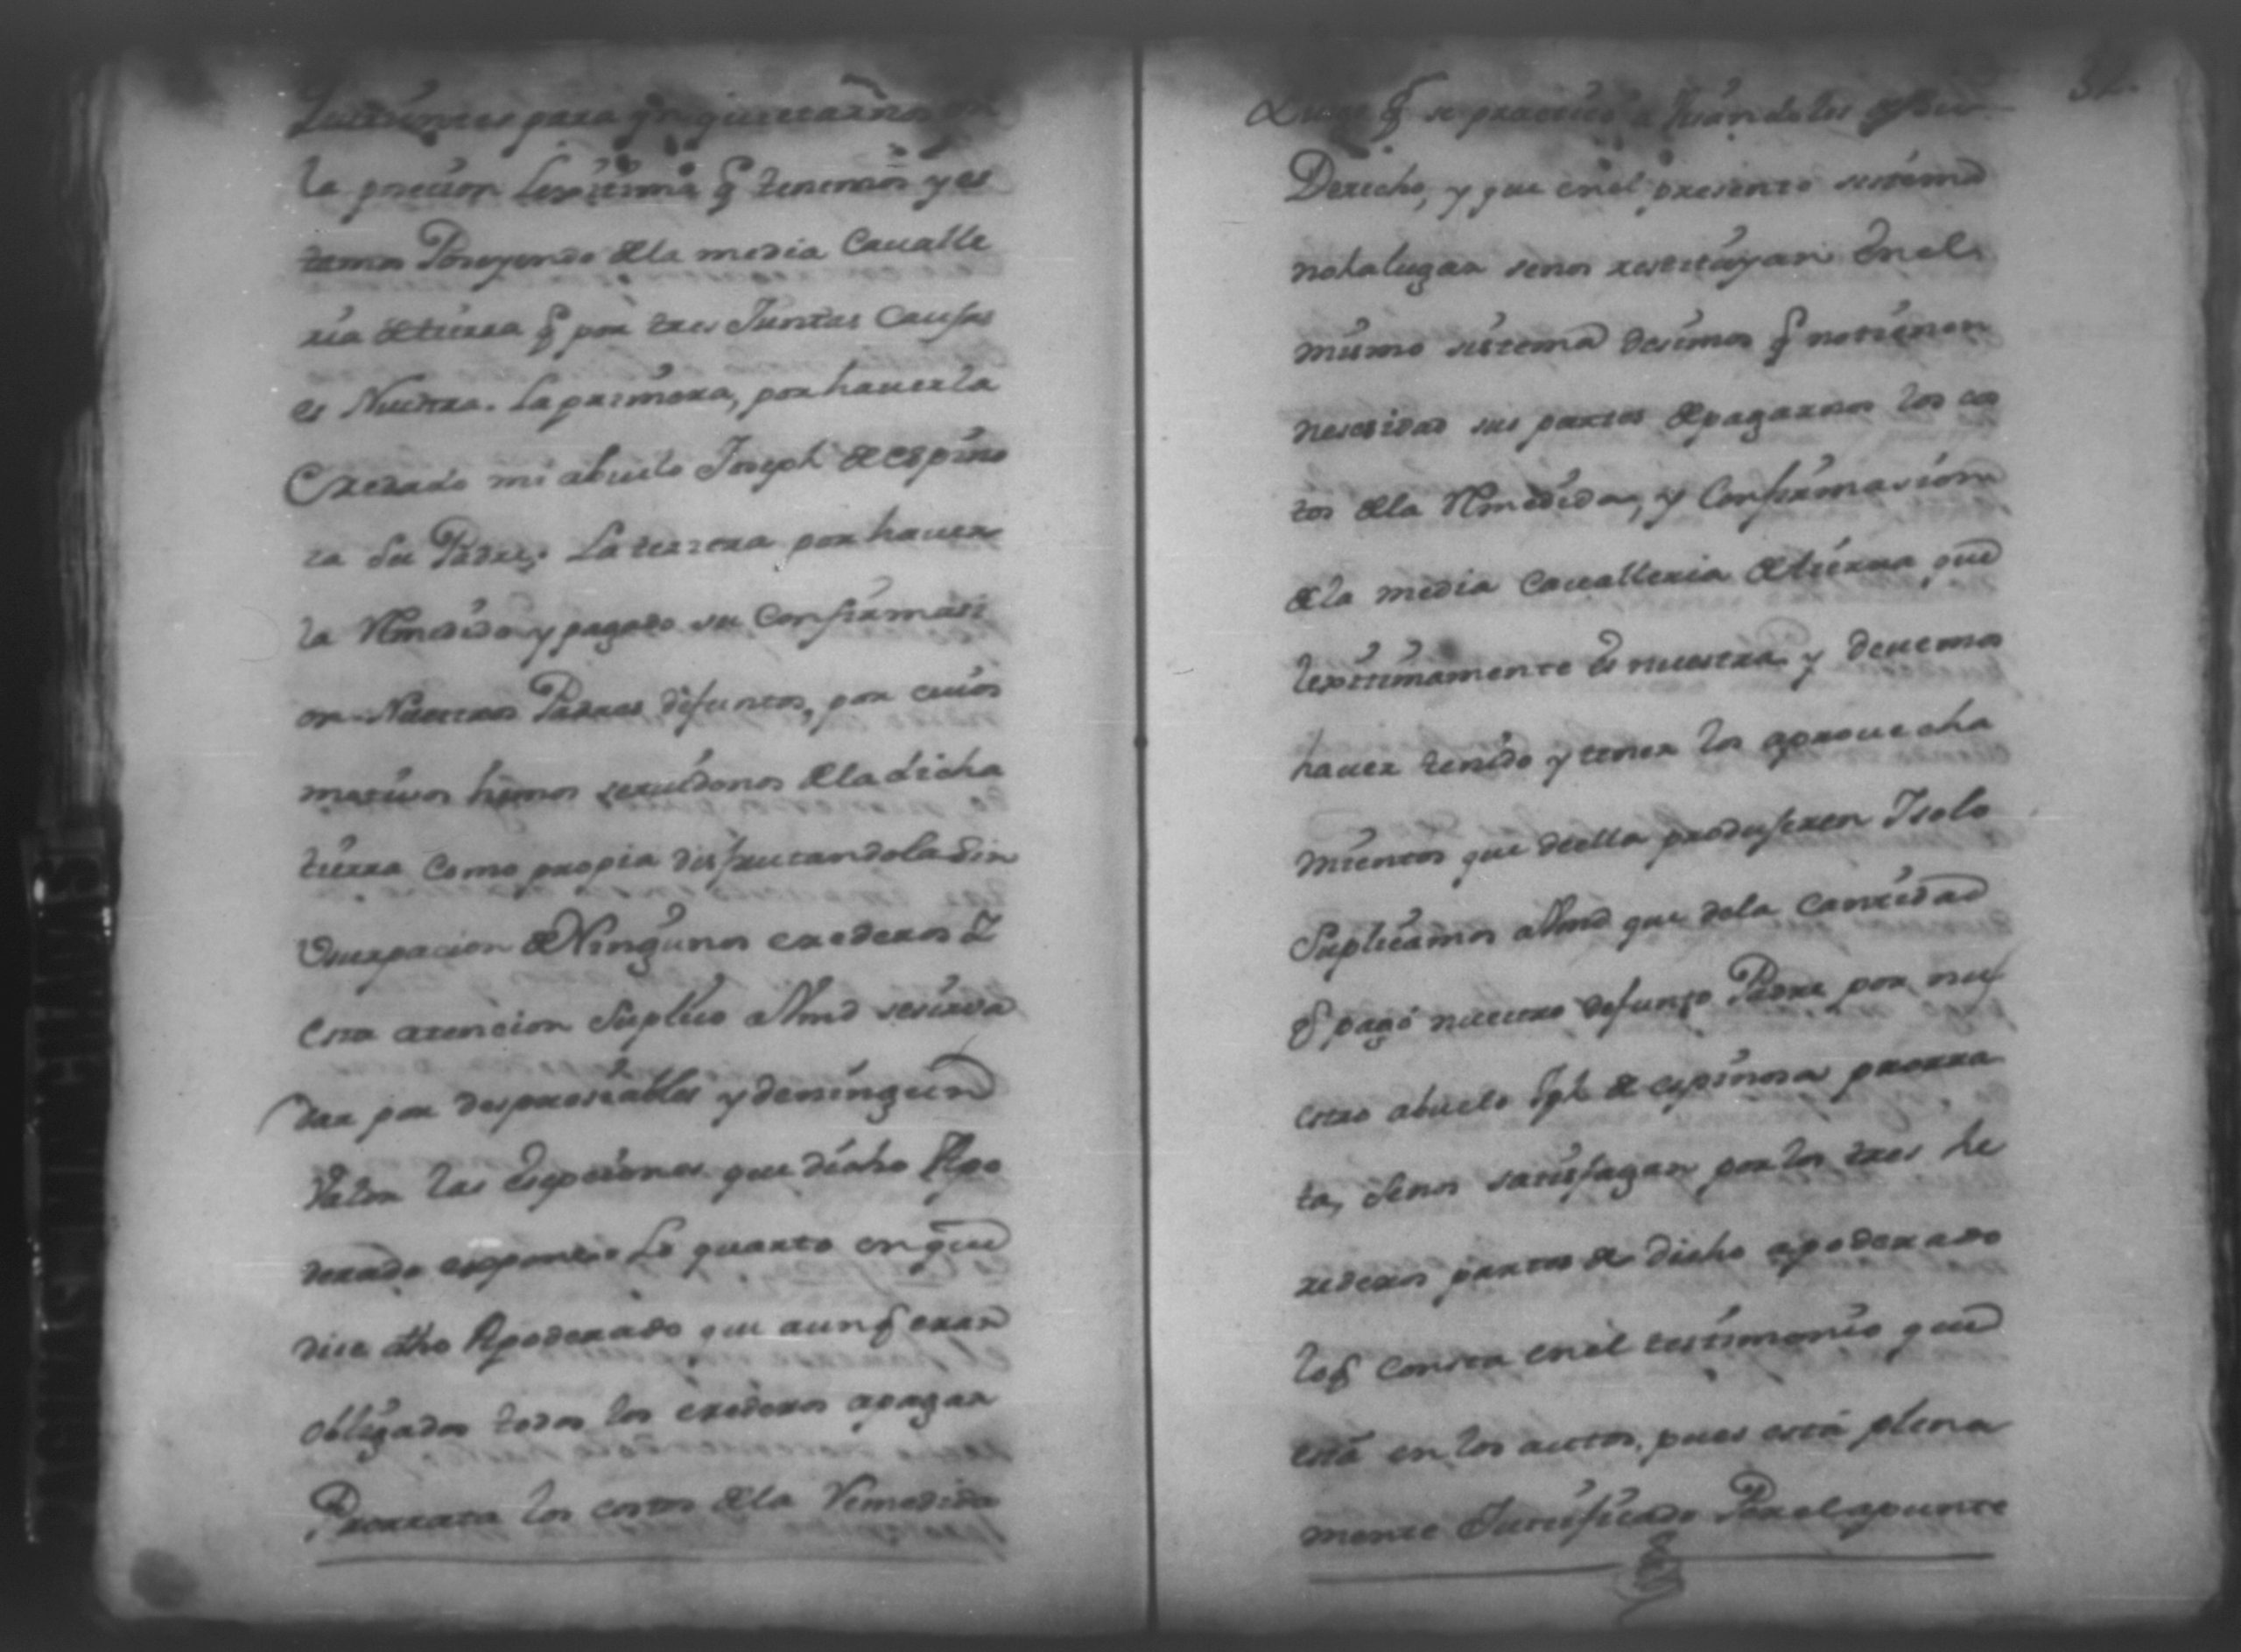 para qᵉ
la posecion Lexitima q̃ tenemos y es
tamos Poseyendo dela media Caualle
ria de tierra q̃ por tres Juntas Causas
es Nuestra. La primera, por hauerla
Credado mi abuelo Joseph de espino
za su Padre. La terzera por hauer
la Rmedido y pagado su Confirmasi
on Nuestros Padres difuntos, por cuios
motiuos hemos seruidonos dela dicha
tierra Como propia disfrutandola sin
Vsurpacion de Ningunos erederos I
Esta atencion Suplico a Vmd sesirva
dar por despresiables y deningun
Valor las Esepciones que dicho Apo
derado expone. Lo quarto en que
dice dho Apoderado que aunq̃ eran
obligados todos los erederos apagar
Prorrata los costos dela Remedida
q̃ se practicó
Derecho, y que enel presente sistema
nohalugar senos restituyan Enel
mismo sistema desimos q̃ notienen
nesesidad sus partes de pagarnos los cos
tos dela Rmedida, y Confirmasion
dela media Caualleria de tierra que
lexitimamente es nuestra y deuemos
hauer tenido y tener los aprouecha
mientos que deella produseren Isolo
Suplicamos aVmd que dela Cantidad
q̃ pagó nuestro defunto Padre por nu
estro abuelo Jph de espinosa prorra
ta, senos satisfagan por los tres he
rederos partes de dicho apoderado
loq̃ consta enel testimonio que
está en los autos, pues está plena
mente Justificado Por el apunte